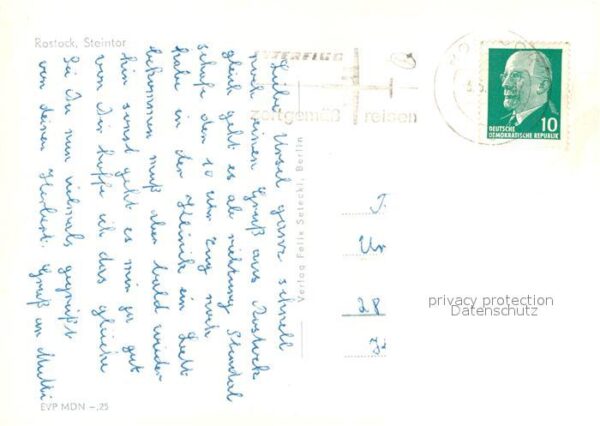 Rostock, Steintor
INTERFLUG
zeitgemäß reisen
10
DEUTSCHE
DEMOKRATISCHE REPUBLIK
Liebe Ursel ganz schnell
noch einen Gruß aus Rostock
gleich geht es ab richtung Stendal
schafe den 10 Uhr Zug noch
habe in der Klinik ein Bett
bekommen muß aber bald wieder
hin sonst geht es mir ja gut
von Dir hoffe ich das gleiche
Sei Du nun vielmals gegrüßt
von deinen Herbert. Gruß an Mutti
Verlag Felix Setecki, Berlin
T.
Ur
28
privacy protection
Datenschutz
EVP MDN -,25